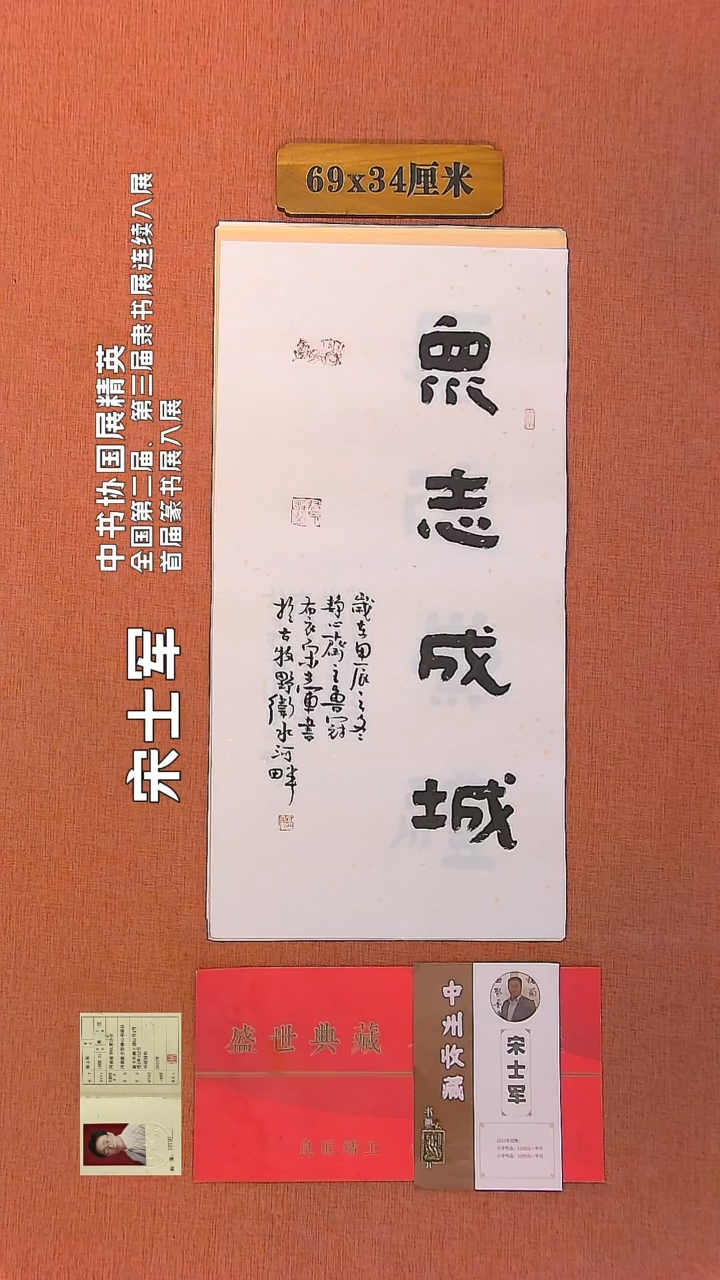 69x34厘米
中书协国展精英
全国第二届、第三届隶书展连续入展
首届篆书展入展
宋士军
眾
志
成
城
歲在甲辰之冬
靜心齋主魯冠
布衣宋士軍書
於古牧野衛水河畔
盛世典藏
中州收藏
书画
宋士军